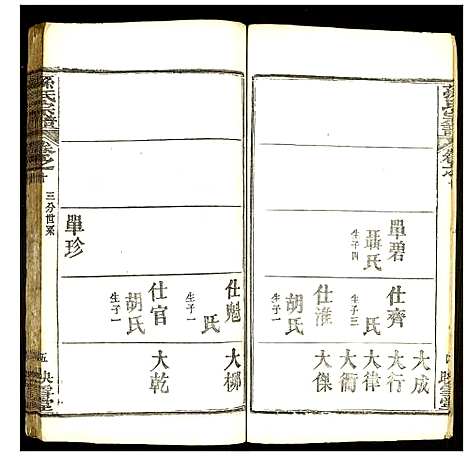 孫氏宗譜
單碧
聶氏
生子四
仕齊
生子三
大成
大行
大律
大衢
仕淮
胡氏
生子一
大傑
仕魁
氏
生子一
大椰
仕官
胡氏
生子一
大乾
單珍
孫氏宗譜
卷之十
三分世系
五
映雪堂